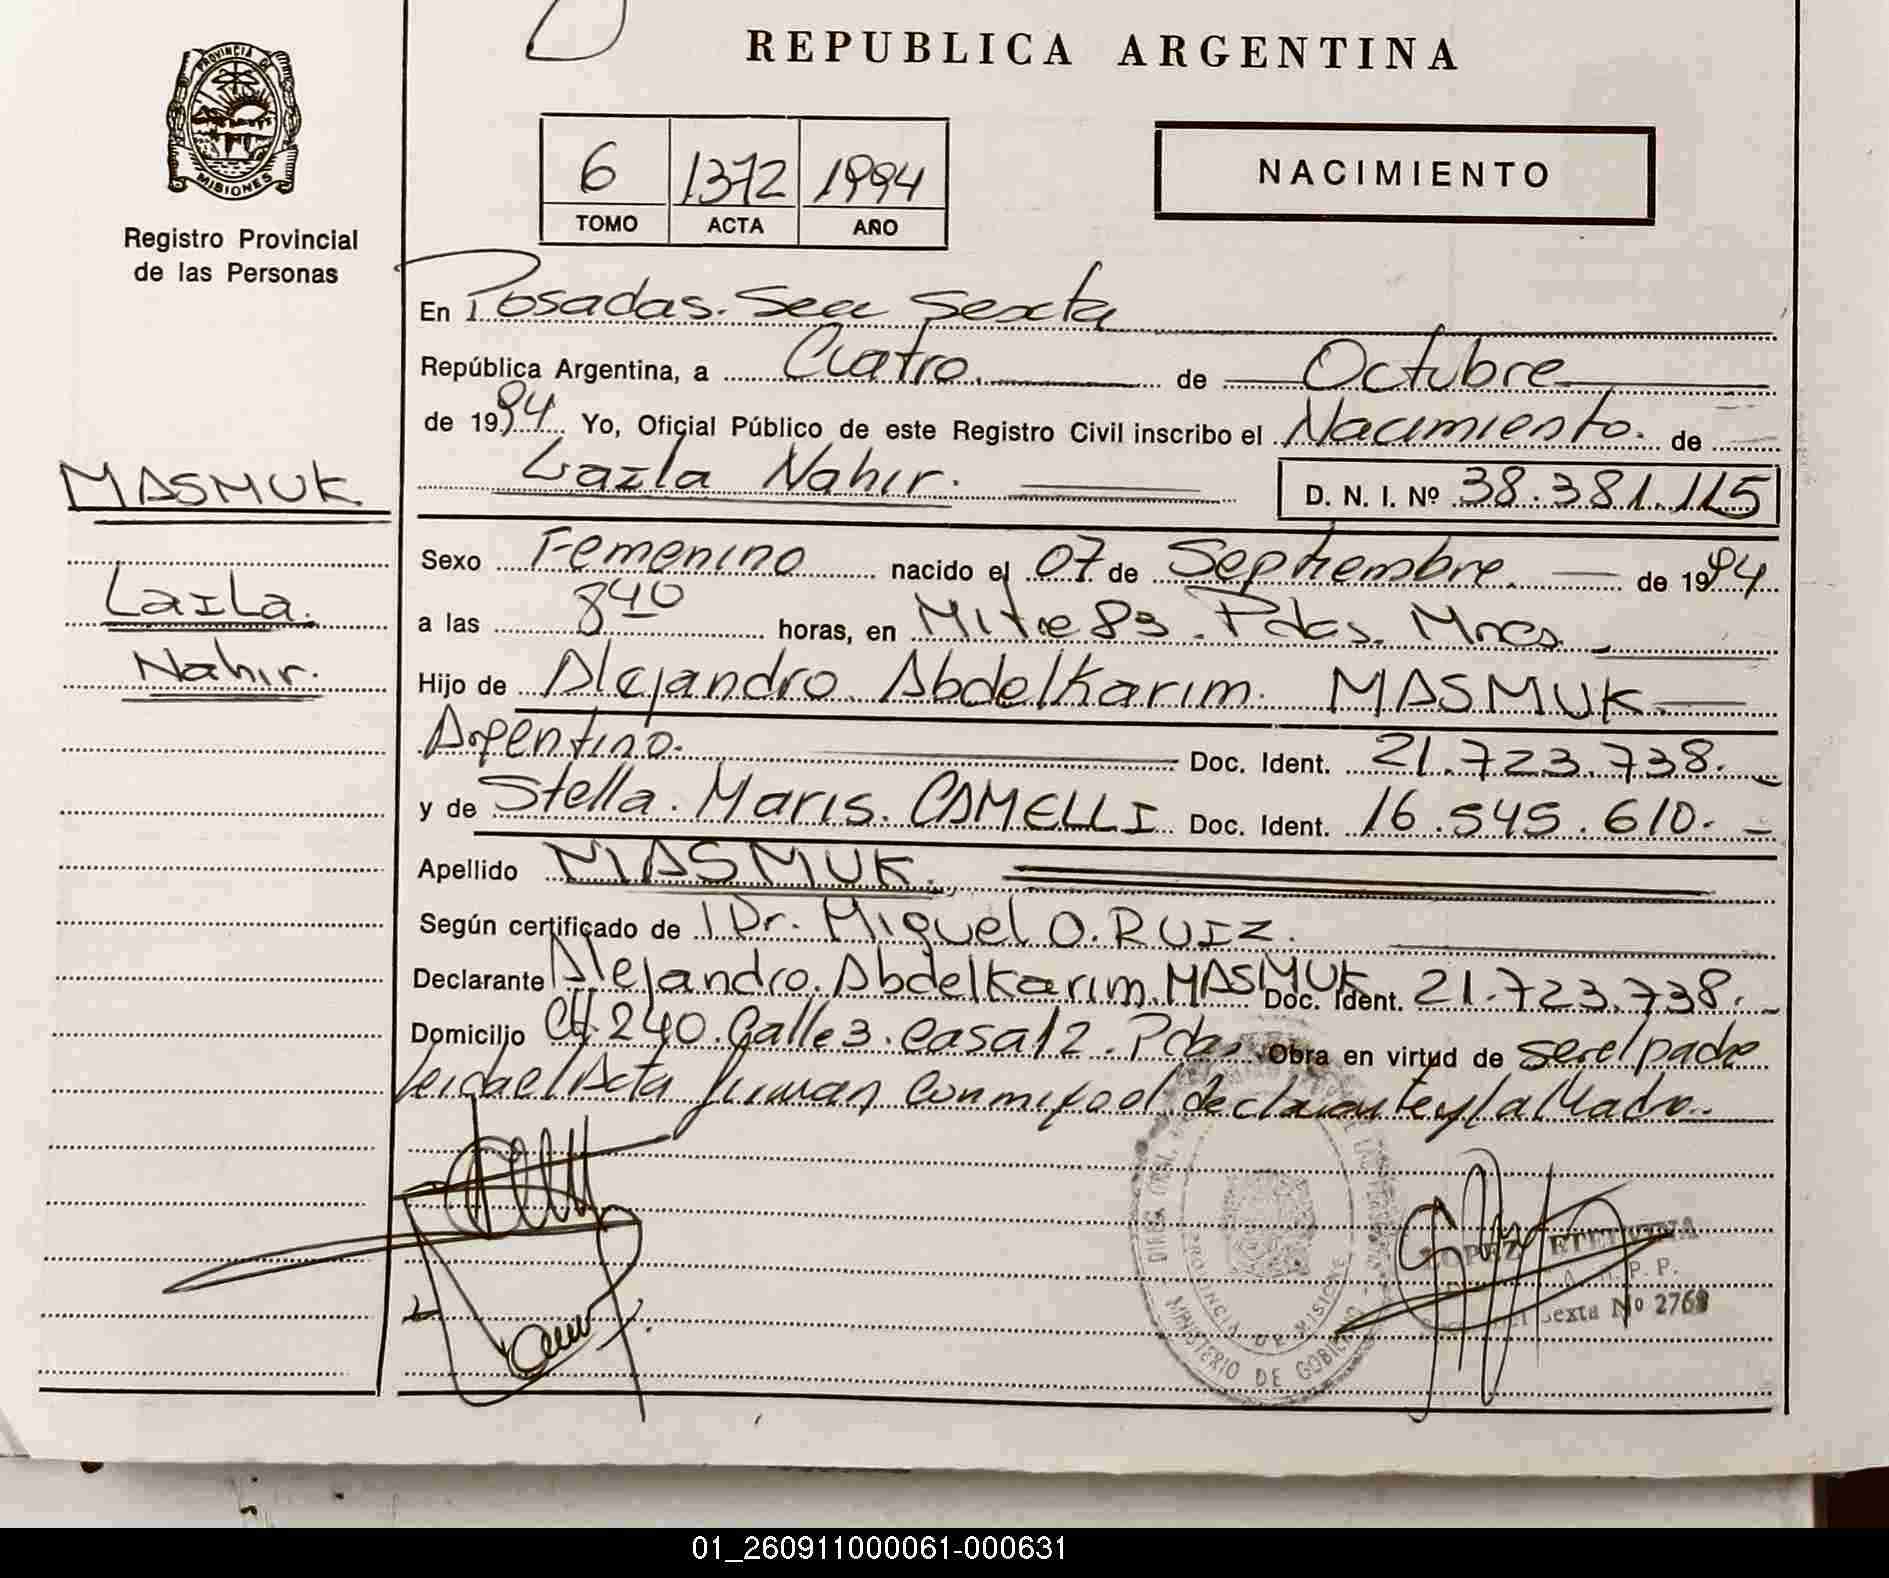 REPUBLICA ARGENTINA
PROVINCIA DE
MISIONES
Registro Provincial
de las Personas
6 1372 1994
TOMO ACTA AÑO
NACIMIENTO
En Posadas. Secc Sexta
República Argentina, a Cuatro. de Octubre
de 1994 Yo, Oficial Público de este Registro Civil inscribo el Nacimiento. de
Laila Nahir. D. N. I. Nº 38.381.115
MASMUK
Laila.
Nahir.
Sexo Femenino nacido el 07 de Septiembre. de 1994
a las 8 40 horas, en Mitre 83. Pdas. Mnes.
Hijo de Alejandro Abdelkarim. MASMUK
Argentino. Doc. Ident. 21.723.738.
y de Stella. Maris. CAMELLI Doc. Ident. 16.545.610.
Apellido MASMUK.
Según certificado de Dr. Miguel O. RUIZ.
Declarante Alejandro. Abdelkarim. MASMUK Doc. Ident. 21.723.738.
Domicilio CH. 240. Calle 3. casa 12. Pdas. Obra en virtud de ser el padre
leida el Acta firman conmigo el declarante y la Madre.
PROVINCIA DE MISIONES
MINISTERIO DE GOBIERNO
LOPEZ ETELVINA
Sexta Nº 2768
01_260911000061-000631